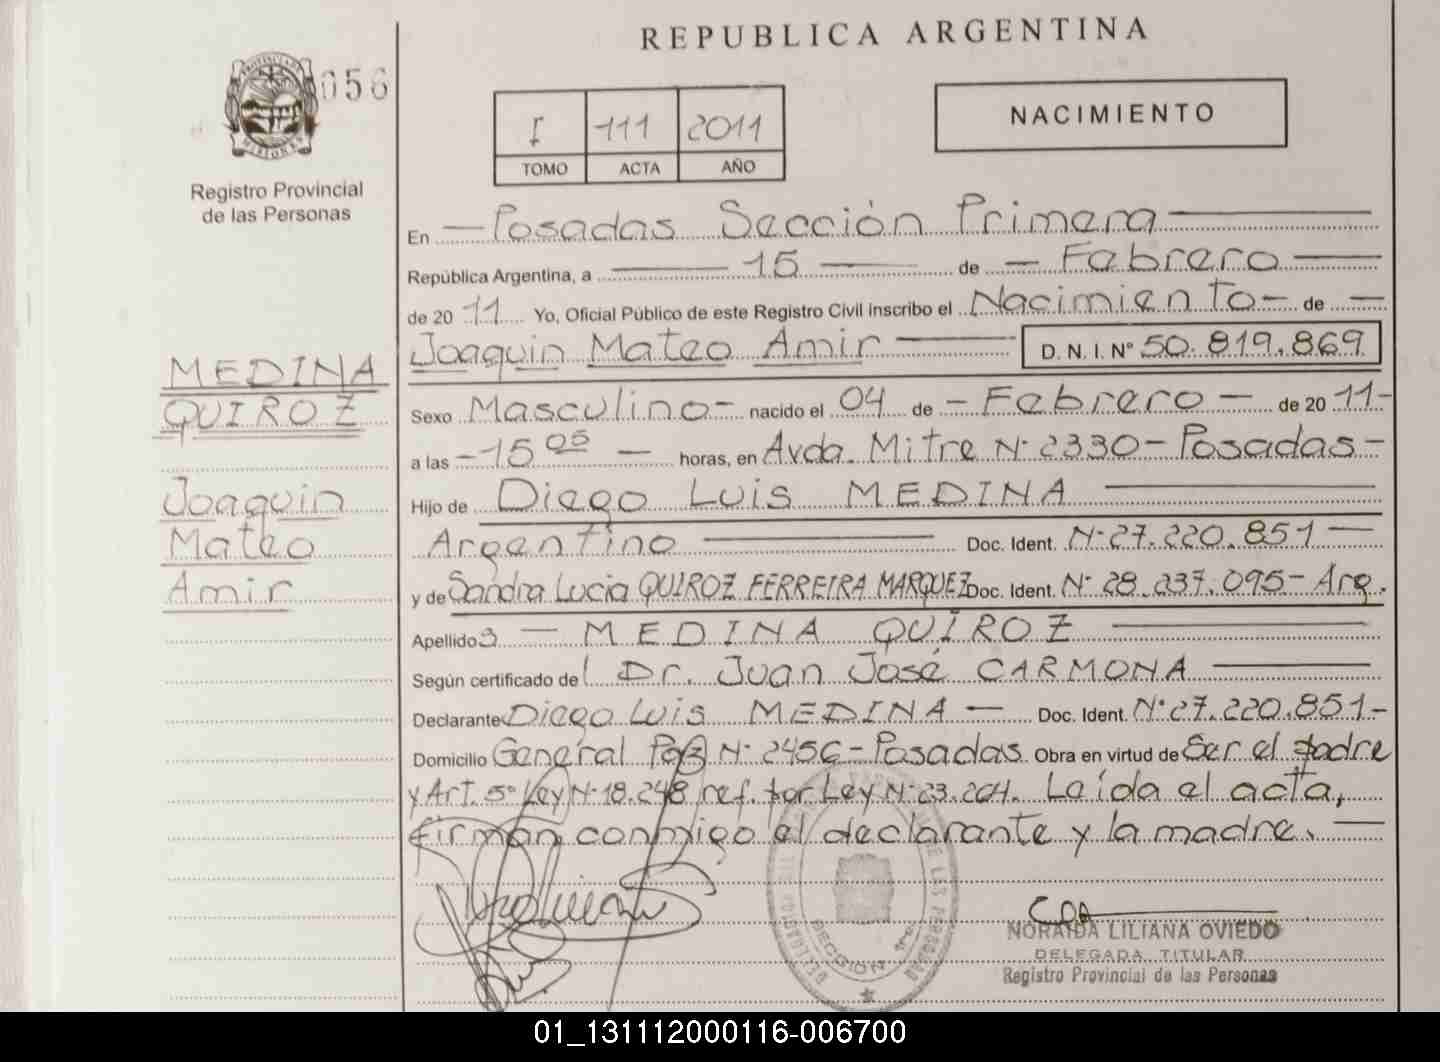 REPUBLICA ARGENTINA
056
I 111 2011
TOMO ACTA AÑO
NACIMIENTO
Registro Provincial
de las Personas
En Posadas Sección Primera
República Argentina, a 15 de Febrero
de 2011 Yo, Oficial Público de este Registro Civil inscribo el Nacimiento de
Joaquin Mateo Amir D. N. I. Nº 50.819.869
MEDINA
QUIROZ
Joaquin
Mateo
Amir
Sexo Masculino nacido el 04 de Febrero de 2011
a las 15 05 horas, en Avda. Mitre Nº 2330 - Posadas
Hijo de Diego Luis MEDINA
Argentino Doc. Ident. Nº 27.220.851
y de Sandra Lucia QUIROZ FERREIRA MARQUEZ Doc. Ident. Nº 28.237.095 - Arg.
Apellido MEDINA QUIROZ
Según certificado del Dr. Juan José CARMONA
Declarante Diego Luis MEDINA Doc. Ident. Nº 27.220.851
Domicilio General Paz Nº 2456 - Posadas. Obra en virtud de Ser el padre
y Art. 5º Ley Nº 18.248 ref. por Ley Nº 23.264. Leída el acta,
firman conmigo el declarante y la madre.
SECCION 1ra.
NORAIDA LILIANA OVIEDO
DELEGADA TITULAR
Registro Provincial de las Personas
01_131112000116-006700